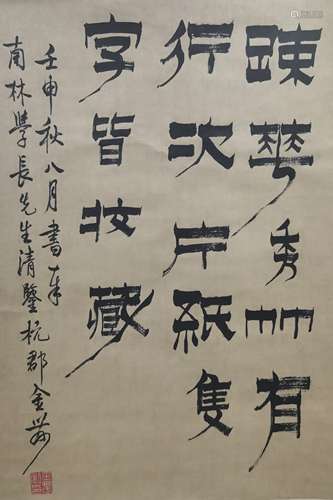 踈華秀竹有
行次片紙隻
字皆收藏
壬申秋八月書奉
南林學長先生清鑒杭郡金